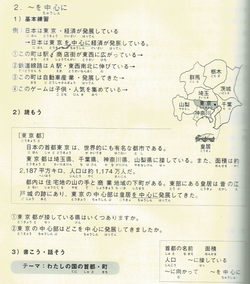 2．～を中心に
1）基本練習
例）日本は東京・経済が発展している
→日本は東京を中心に経済が発展している。
①この町は駅・商店街が東西に広がっている
②鉄道路線はA駅・東西南北に伸びている→
③この町は自動車産業・発展してきた→
④このゲームは子供・人気を集めている→
群馬
栃木
埼玉
茨城
山梨
東京
千葉
神奈川
皇居
2）読もう
【東京都】
日本の首都東京は、世界的にも有名な都市である。
東京都は埼玉県、千葉県、神奈川県、山梨県に接している。また、面積は約
2,187平方キロ、人口は約1,174万人だ。
都内は住宅地の山の手と商業地域の下町がある。東部にある皇居は昔の江
戸城の跡にあり、東京はここを中心に発展してきた。
①東京都が接している県はいくつありますか。
②東京の中心部はどこを中心に発展してきましたか。
3）書こう・話そう
テーマ：わたしの国の首都・町
首都の名前　面積
人口　～に接している
～に向かって　～を中心に